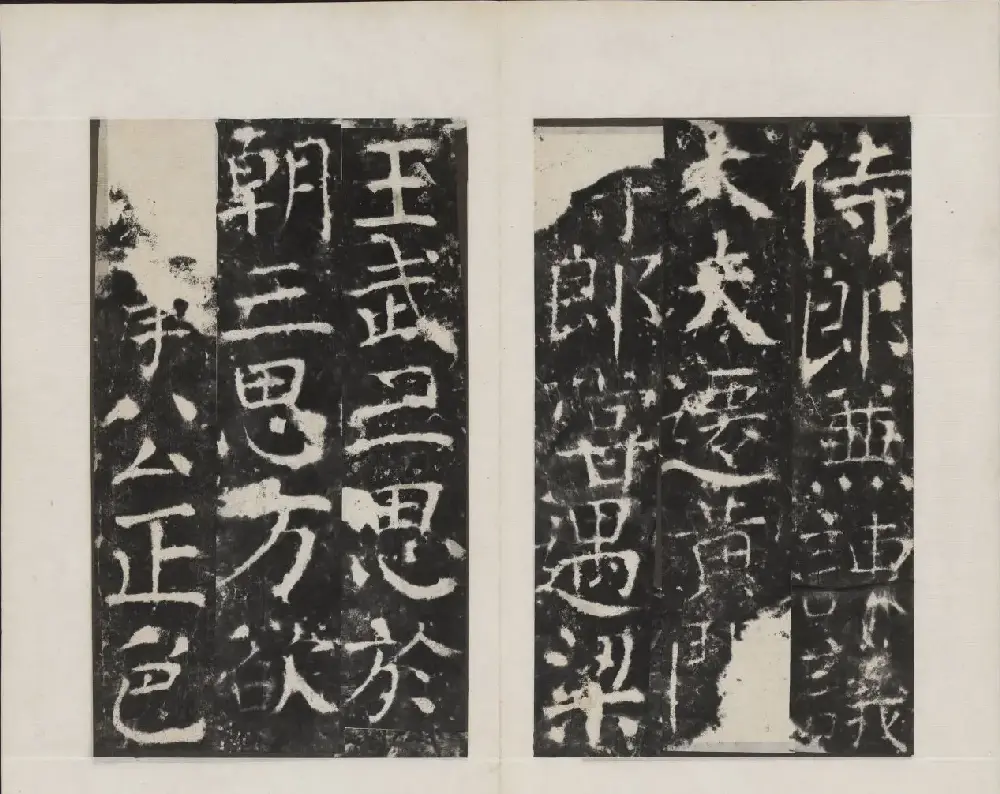 侍郎兼諫議
大夫遷黃門
郎遇梁
王武三思於
朝三思方欲
手公正色